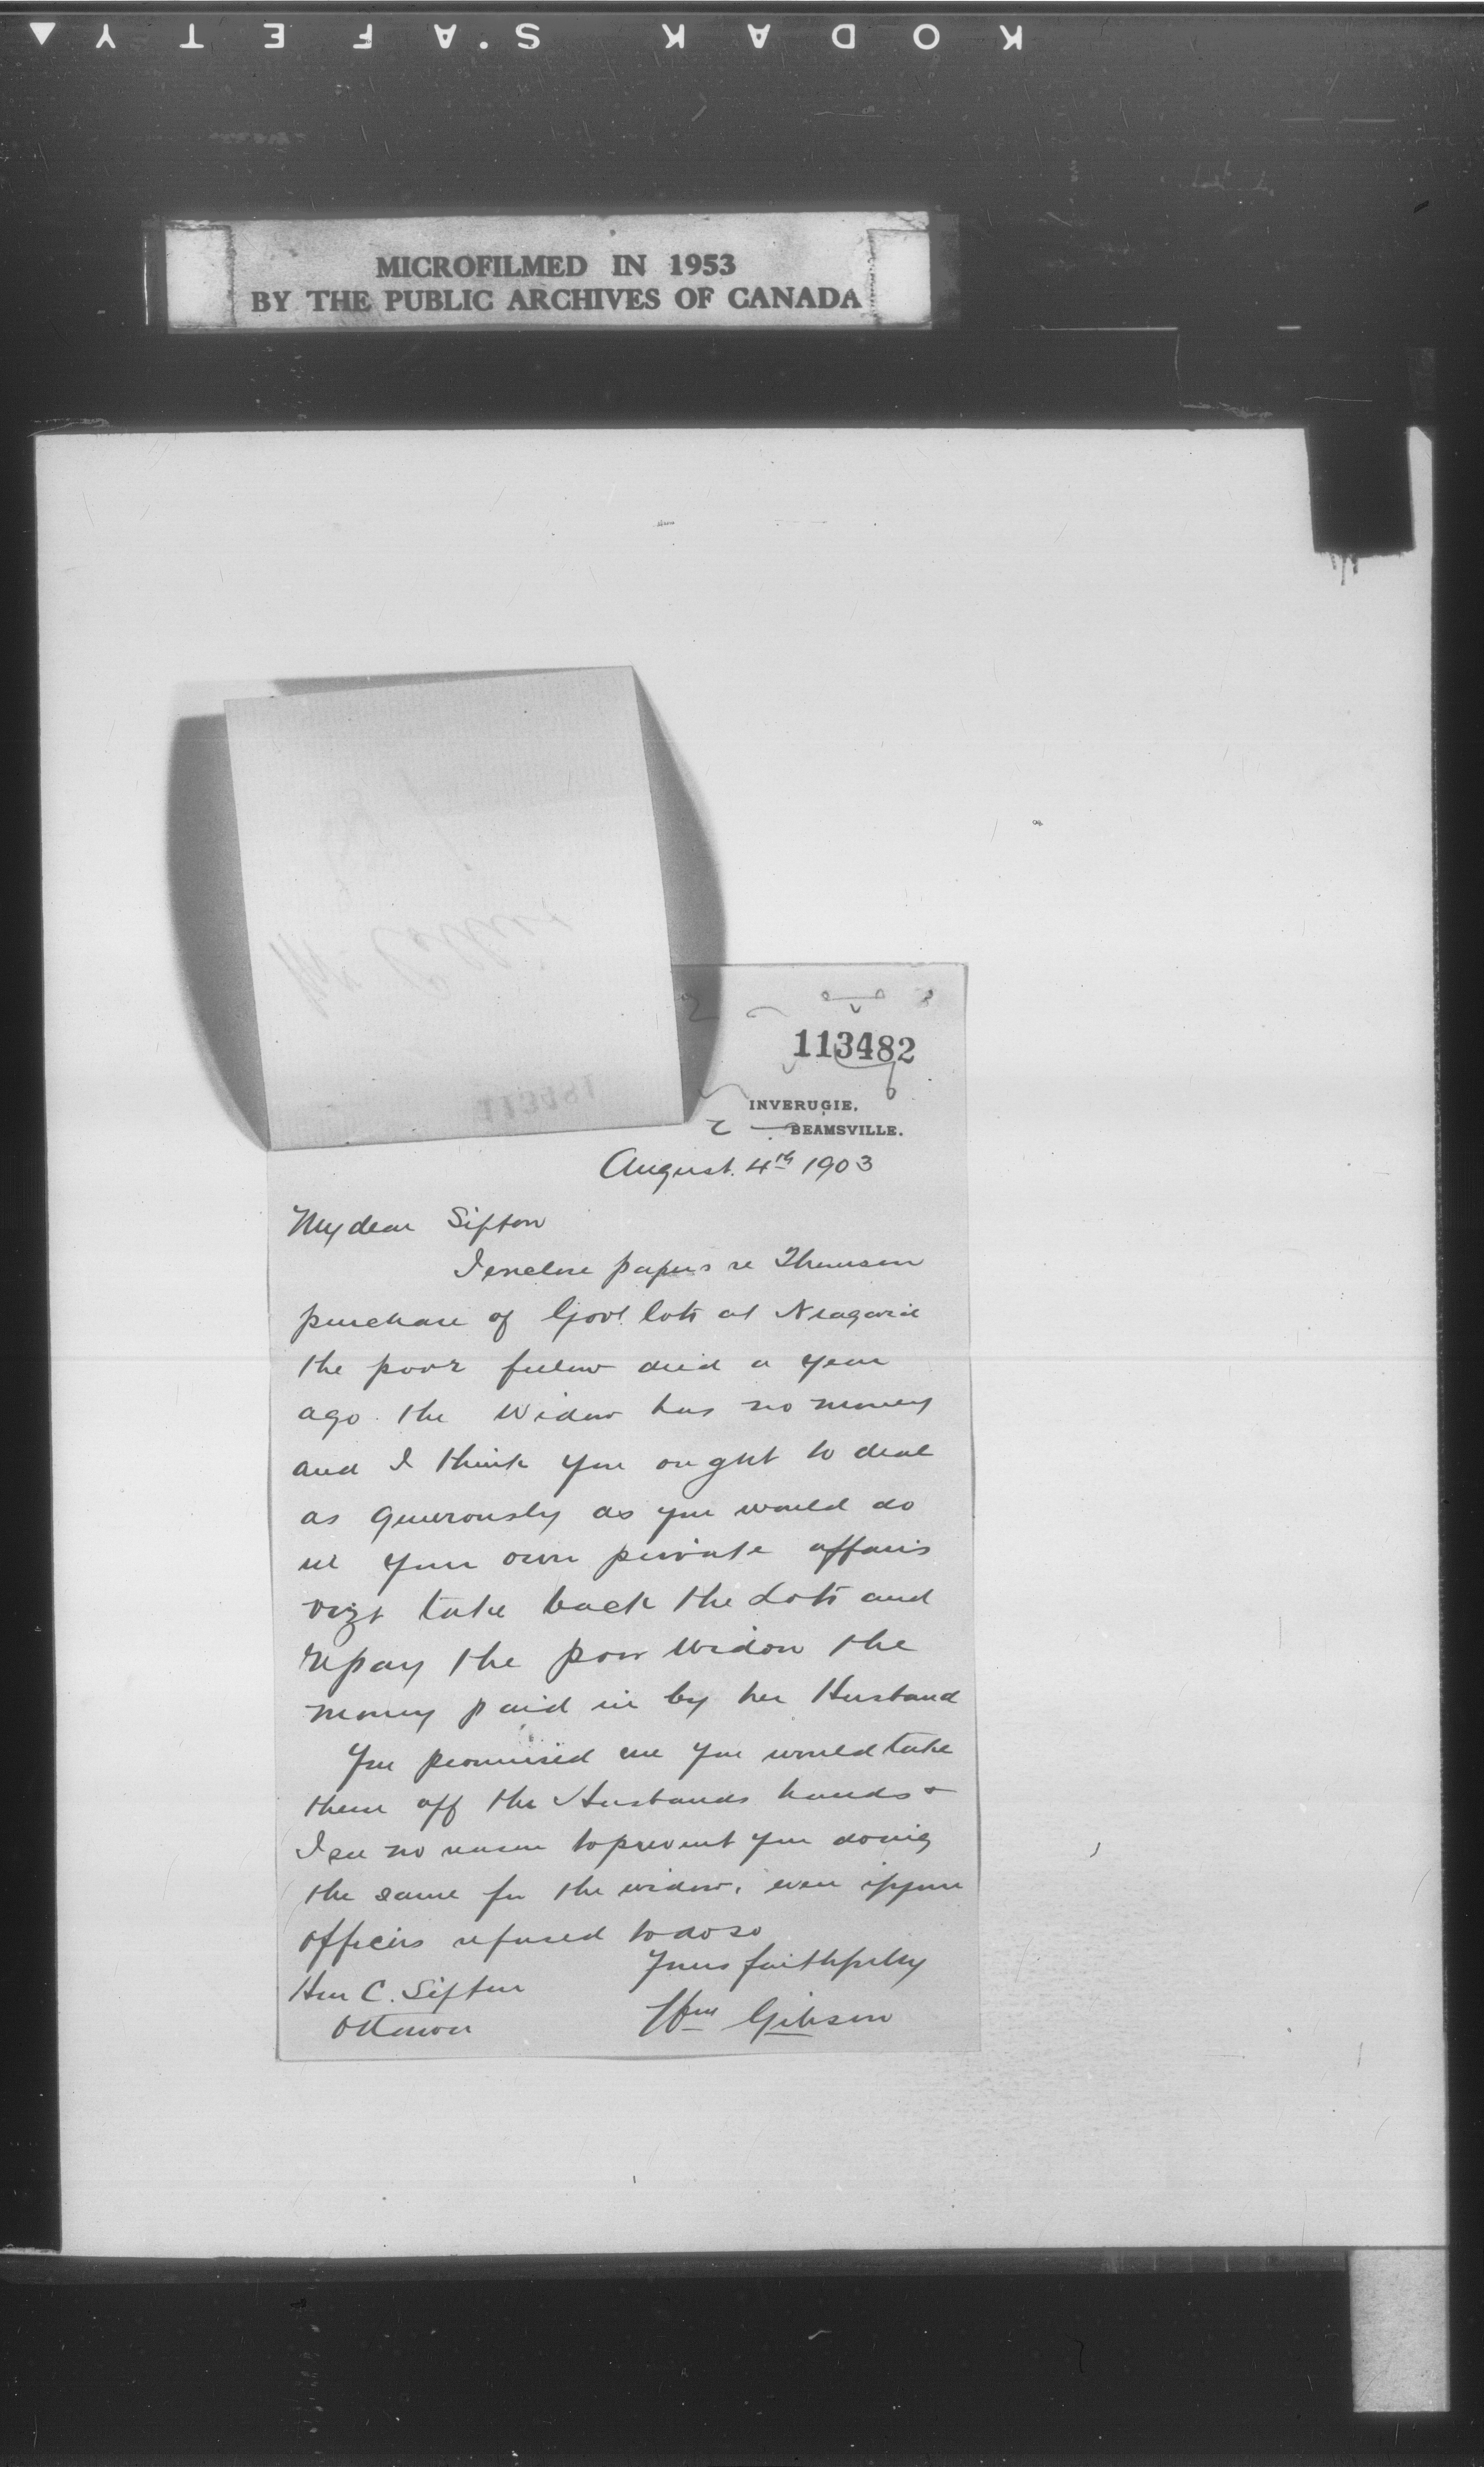 KODAK SAFETY
MICROFILMED IN 1953
BY THE PUBLIC ARCHIVES OF CANADA
113481
113482
INVERUGIE,
BEAMSVILLE.
August. 4th 1903
My dear Sifton
I enclose papers re Thomson
purchase of Govt. lots at Niagara
the poor fellow died a year
ago. the Widow has no money
and I think you ought to deal
as generously as you would do
in your own private affairs
vizt take back the Lots and
repay the poor Widow the
money paid in by her Husband
You promised me you would take
them off the Husbands hands &
I see no reason to prevent you doing
the same for the widow, even if your
officers refused to do so
Yours faithfully
Hon C. Sifton
Ottawa
Wm Gibson